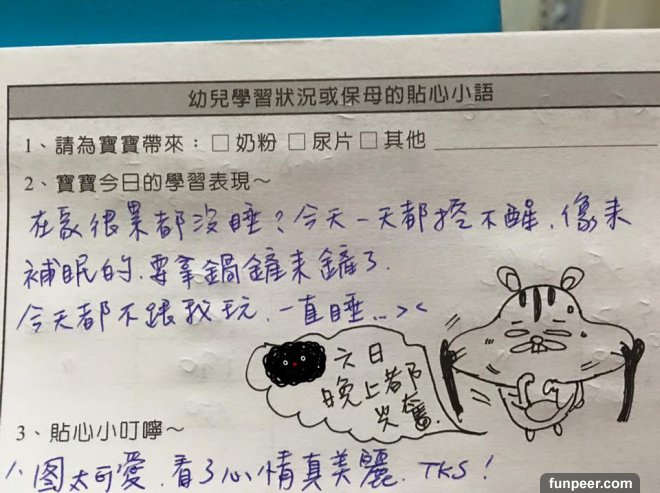 幼兒學習狀況或保母的貼心小語
1、請為寶寶帶來：□ 奶粉 □ 尿片 □ 其他
2、寶寶今日的學習表現～
在家很累都沒睡？今天一天都挖不醒．像來
補眠的．要拿鍋鏟來鏟了．
今天都不跟我玩．一直睡...><
六日
晚上都
興奮．
3、貼心小叮嚀～
八 图太可愛．看了心情真美麗．TKS！
funpeer.com